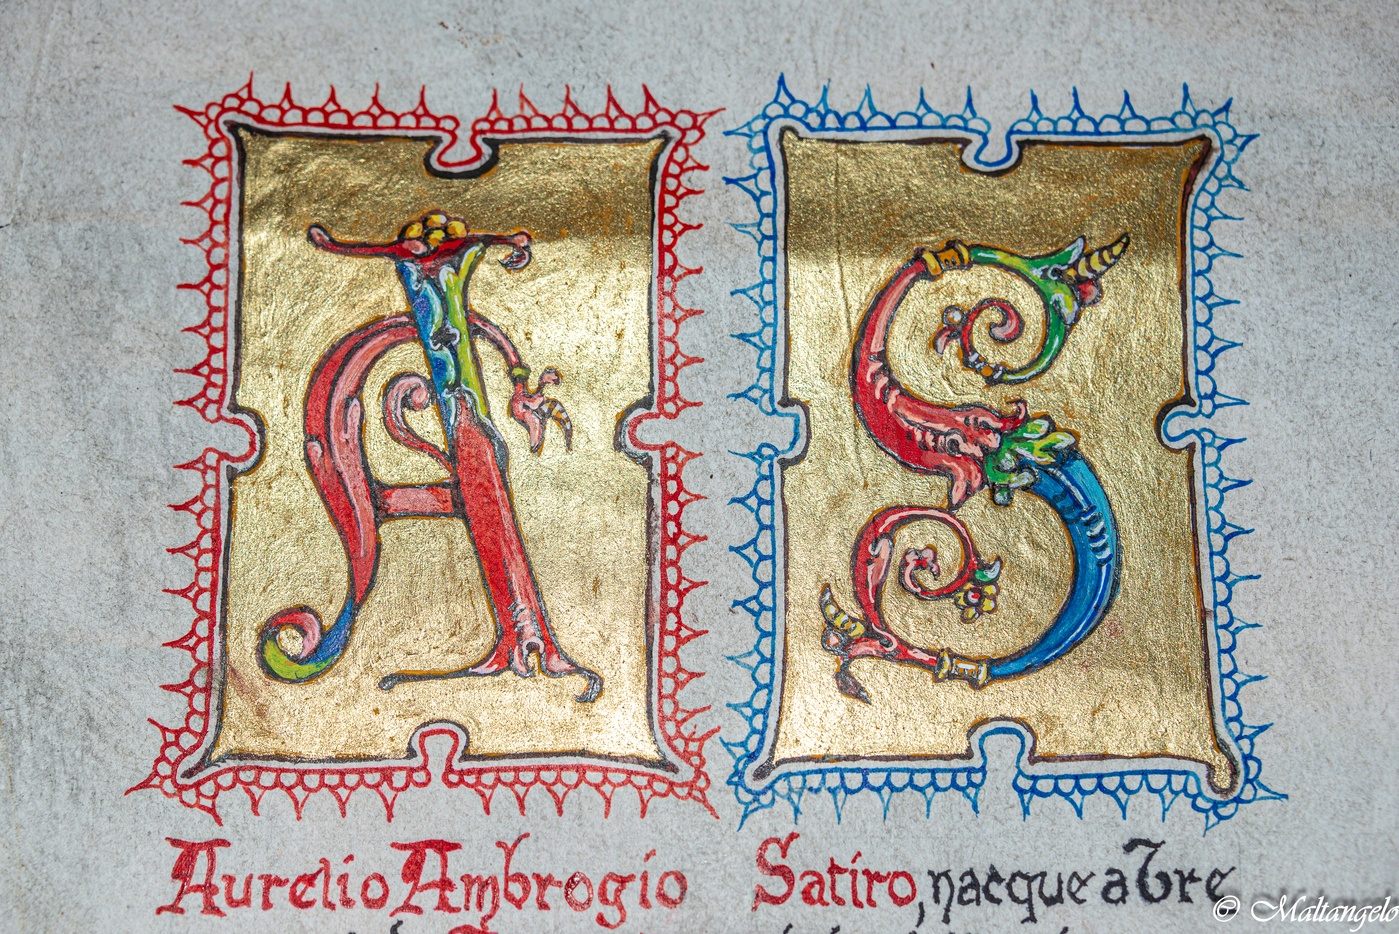 A
S
Aurelio Ambrogio
Satiro, nacque a Tre
© Maltangelo